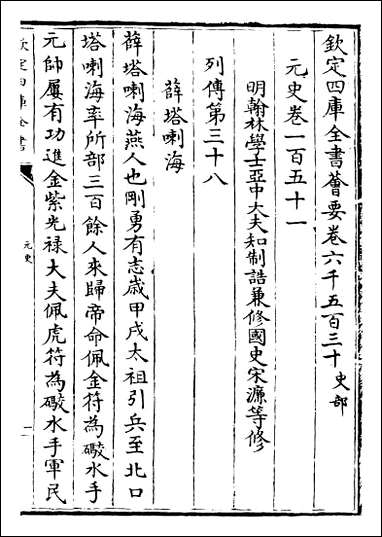 欽定四庫全書薈要卷六千五百三十 史部
元史卷一百五十一
明翰林學士亞中大夫知制誥兼修國史宋濂等修
列傳第三十八
薛塔喇海
薛塔喇海燕人也剛勇有志歲甲戌太祖引兵至北口
塔喇海率所部三百餘人來歸帝命佩金符為礮水手
元帥屢有功進金紫光祿大夫佩虎符為礮水手軍民
欽定四庫全書
元史